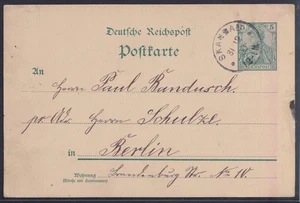 Deutsche Reichspost
Postkarte
An
Herrn Paul Bundusch.
pr. Adr. Herrn Schulze
in Berlin
Wohnung Brandenburg Str. No 10.
(Straße und Hausnummer)
5